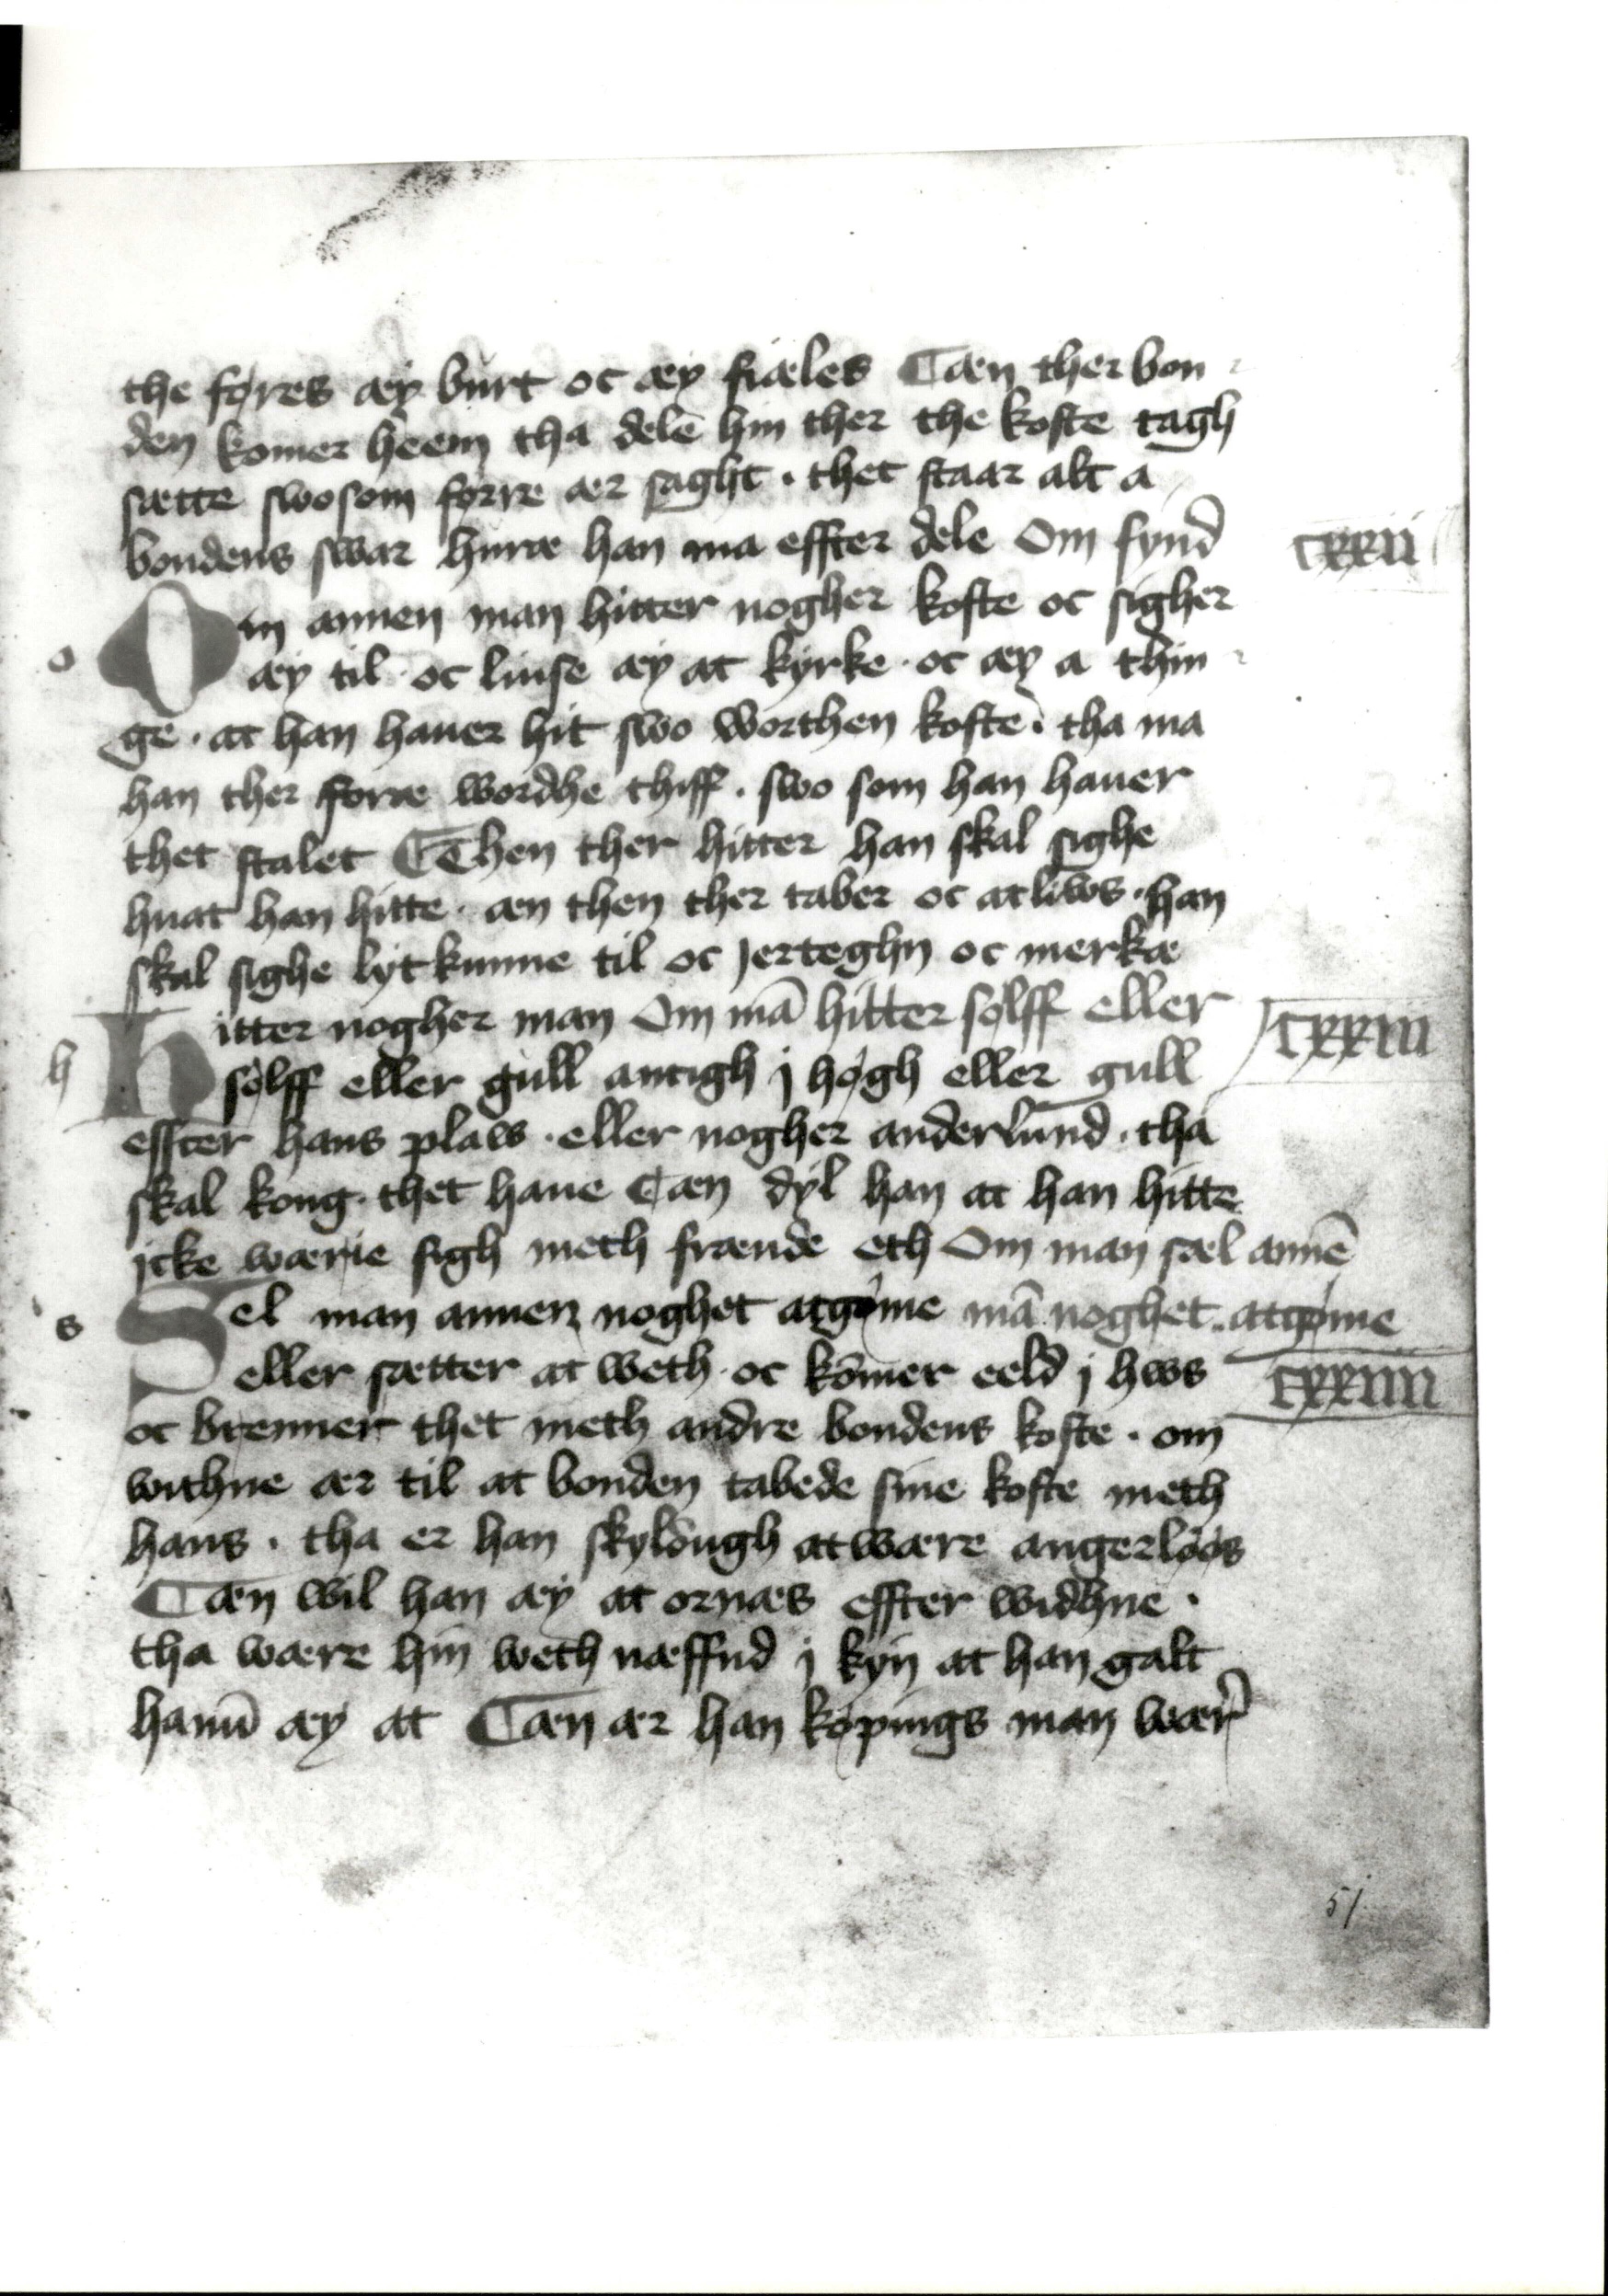 the føres æy burt oc æy fiæles Cæn ther bon
den komer heem tha delē hin ther the koste tagh
sætte swosom førre ær saght · thet staar alt a
bondens swar huræ han ma effter dele Om fynd
cxxii
Om annen man hitter nogher koste oc sigher
o
æy til · oc liuse æy at kyrke · oc æy a thin
ge · at han hauer hit swo worthen koste · tha ma
han ther forre wordhe thiff · swo som han hauer
thet stalet CThen ther hitter han skal sighe
huat han hitte · æn then ther taber oc atliws · han
skal sighe lytkunne til oc jerteghn oc merkæ
Hitter nogher man Om mā hitter sølff eller
cxxiii
h
sølff eller gull antigh j høgh eller gull
effter hans plaws · eller nogher anderlund · tha
skal kong · thet haue Cæn dyl han at han hitte
jcke wærie sigh meth frænde eth Om man sæl annē
Sel man annen noghet atgøme mā noghet atgøme
s
eller sætter at weth · oc kōmer eeld j hws
cxxiiii
oc brenner thet meth andre bondens koste · om
withne ær til at bonden tabede sine koste meth
hans · tha er han skyldugh at wære angerløøs
Cæn wil han æy at ornæs effter widhne ·
tha wære hin weth næffnd j kyn at han galt
hanū æy at Cæn ær han køpings man wær
51